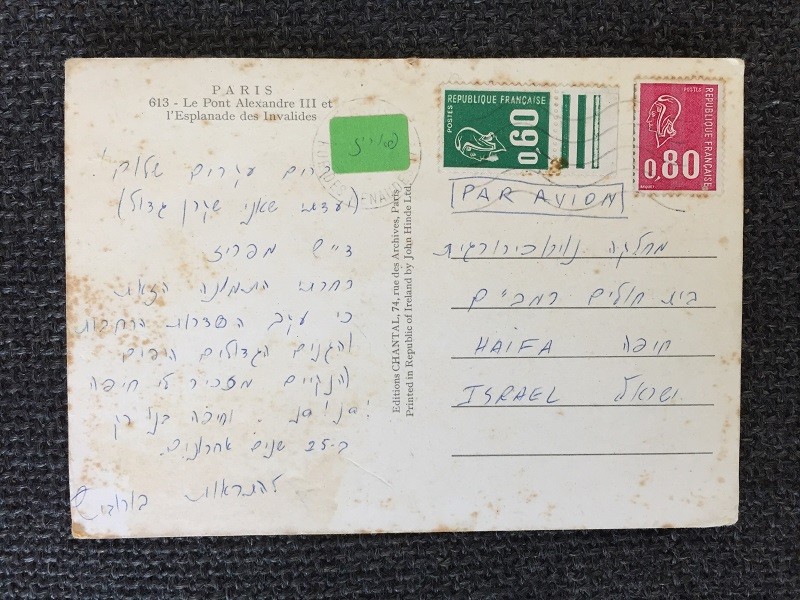 PARIS
613 - Le Pont Alexandre III et
l'Esplanade des Invalides
פוליו
עקרים שלום!
(ועדתי שאני שקרן גדול)
ד"ש מפריז
בחרתי התמונה הזאת
כי עקב השדרות הרחבות
והגנים הגדולים היפים
והנקיים מזכיר לי חיפה
וחיפה בנו רק
ב-25 שנים אחרונים.
להתראות
Editions CHANTAL, 74, rue des Archives, Paris
Printed in Republic of Ireland by John Hinde Ltd.
POSTES REPUBLIQUE FRANÇAISE
0,60
POSTES REPUBLIQUE FRANÇAISE
0,80
PAR AVION
מחלקה נוירוכירורגית
בית חולים רמב"ם
HAIFA חיפה
ISRAEL ישראל